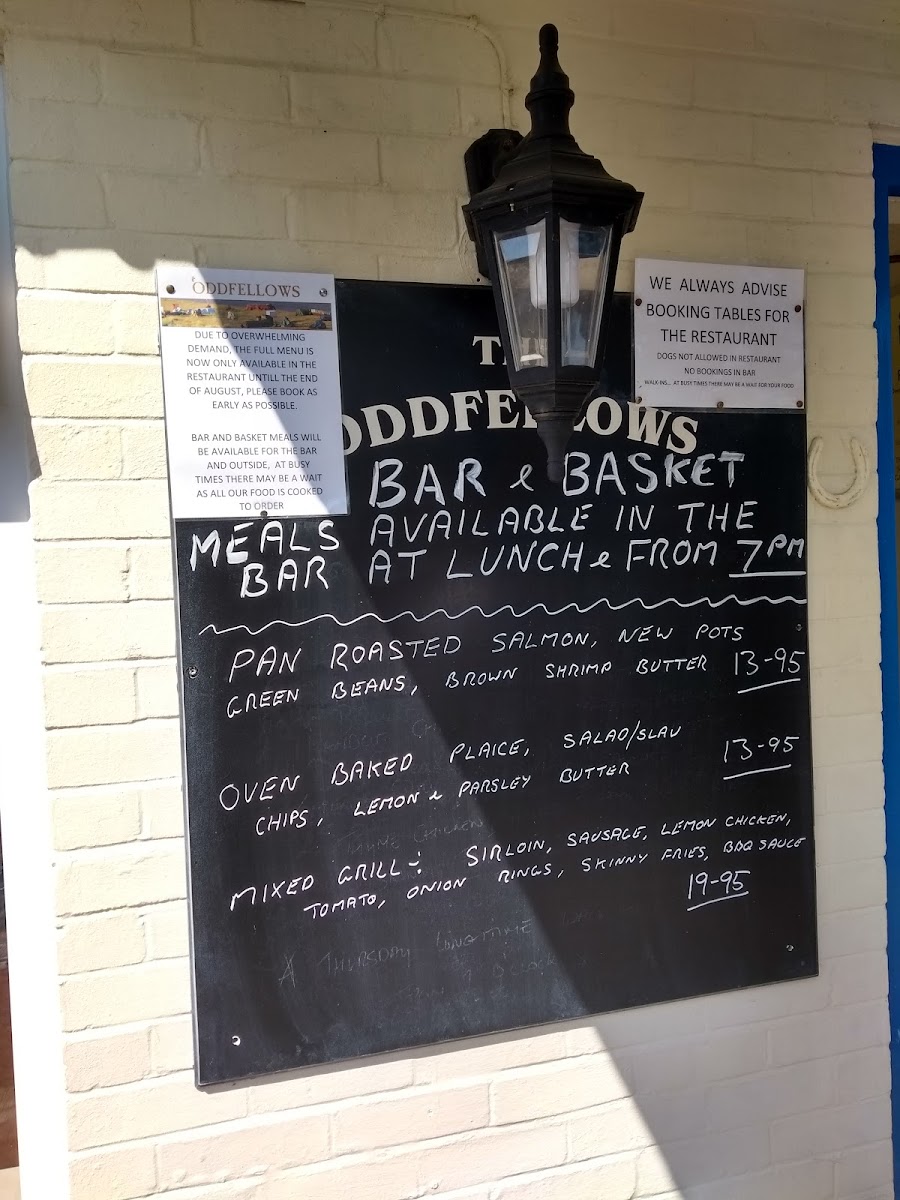 ODDFELLOWS
DUE TO OVERWHELMING
DEMAND, THE FULL MENU IS
NOW ONLY AVAILABLE IN THE
RESTAURANT UNTILL THE END
OF AUGUST, PLEASE BOOK AS
EARLY AS POSSIBLE.
BAR AND BASKET MEALS WILL
BE AVAILABLE FOR THE BAR
AND OUTSIDE, AT BUSY
TIMES THERE MAY BE A WAIT
AS ALL OUR FOOD IS COOKED
TO ORDER
WE ALWAYS ADVISE
BOOKING TABLES FOR
THE RESTAURANT
DOGS NOT ALLOWED IN RESTAURANT
NO BOOKINGS IN BAR
WALK-INS... AT BUSY TIMES THERE MAY BE A WAIT FOR YOUR FOOD
ODDFELLOWS
BAR & BASKET
MEALS AVAILABLE IN THE
BAR AT LUNCH & FROM 7PM
PAN ROASTED SALMON, NEW POTS
GREEN BEANS, BROWN SHRIMP BUTTER 13-95
OVEN BAKED PLAICE, SALAD/SLAU
CHIPS, LEMON & PARSLEY BUTTER 13-95
MIXED GRILL -: SIRLOIN, SAUSAGE, LEMON CHICKEN,
TOMATO, ONION RINGS, SKINNY FRIES, BBQ SAUCE
19-95
THURSDAY